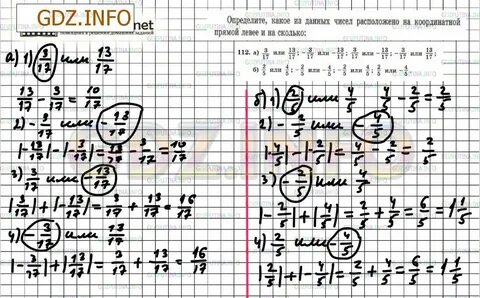 GDZ.INFO
net
Определите, какое из данных чисел расположено на координатной
прямой левее и на сколько:
112. а) 3/17 или 13/17; -3/17 или -13/17; 3/17 или -13/17; -3/17 или 13/17;
б) 2/5 или 4/5; -2/5 или -4/5; -2/5 или 4/5; 2/5 или -4/5.
а) 1) 3/17 или 13/17
13/17 - 3/17 = 10/17
2) -3/17 или -13/17
|-13/17| - |-3/17| = 13/17 - 3/17 = 10/17
3) 3/17 или -13/17
|3/17| + |-13/17| = 3/17 + 13/17 = 16/17
4) -3/17 или 13/17
|-3/17| + |13/17| = 3/17 + 13/17 = 16/17
б) 1) 2/5 или 4/5 4/5 - 2/5 = 2/5
2) -2/5 или -4/5
|-4/5| - |-2/5| = 4/5 - 2/5 = 2/5
3) -2/5 или 4/5
|-2/5| + |4/5| = 2/5 + 4/5 = 6/5 = 1 1/5
4) 2/5 или -4/5
|2/5| + |-4/5| = 2/5 + 4/5 = 6/5 = 1 1/5